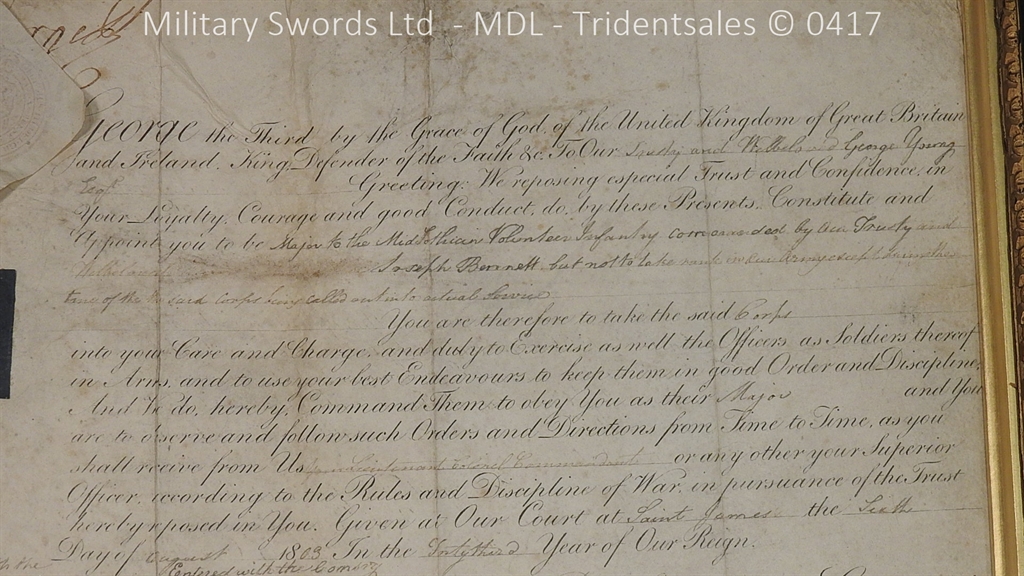 Military Swords Ltd - MDL - Tridentsales © 0417
George the Third by the Grace of God, of the United Kingdom of Great Britain
and Ireland, King, Defender of the Faith &c. To Our Trusty and Welbeloved George Young
Esqr. Greeting: We reposing especial Trust and Confidence in
Your Loyalty, Courage and good Conduct, do, by these Presents, Constitute and
Appoint you to be Major to the Volunteer Infantry commanded by our Trusty and
Welbeloved Joseph Bennett but not to take rank in Our Army except during the
time of the said Corps being called out into actual Service
You are therefore to take the said Corps
into your Care and Charge, and duly to Exercise as well the Officers as Soldiers thereof
in Arms, and to use your best Endeavours to keep them in good Order and Discipline,
And We do, hereby, Command Them to obey You as their Major and You
are to observe and follow such Orders and Directions from Time to Time, as you
shall receive from Us Lieutenant Colonel Commandant or any other your Superior
Officer, according to the Rules and Discipline of War, in pursuance of the Trust
hereby reposed in You. Given at Our Court at Saint James the
Day of August 1803 In the Forty third Year of Our Reign.
Entered with the